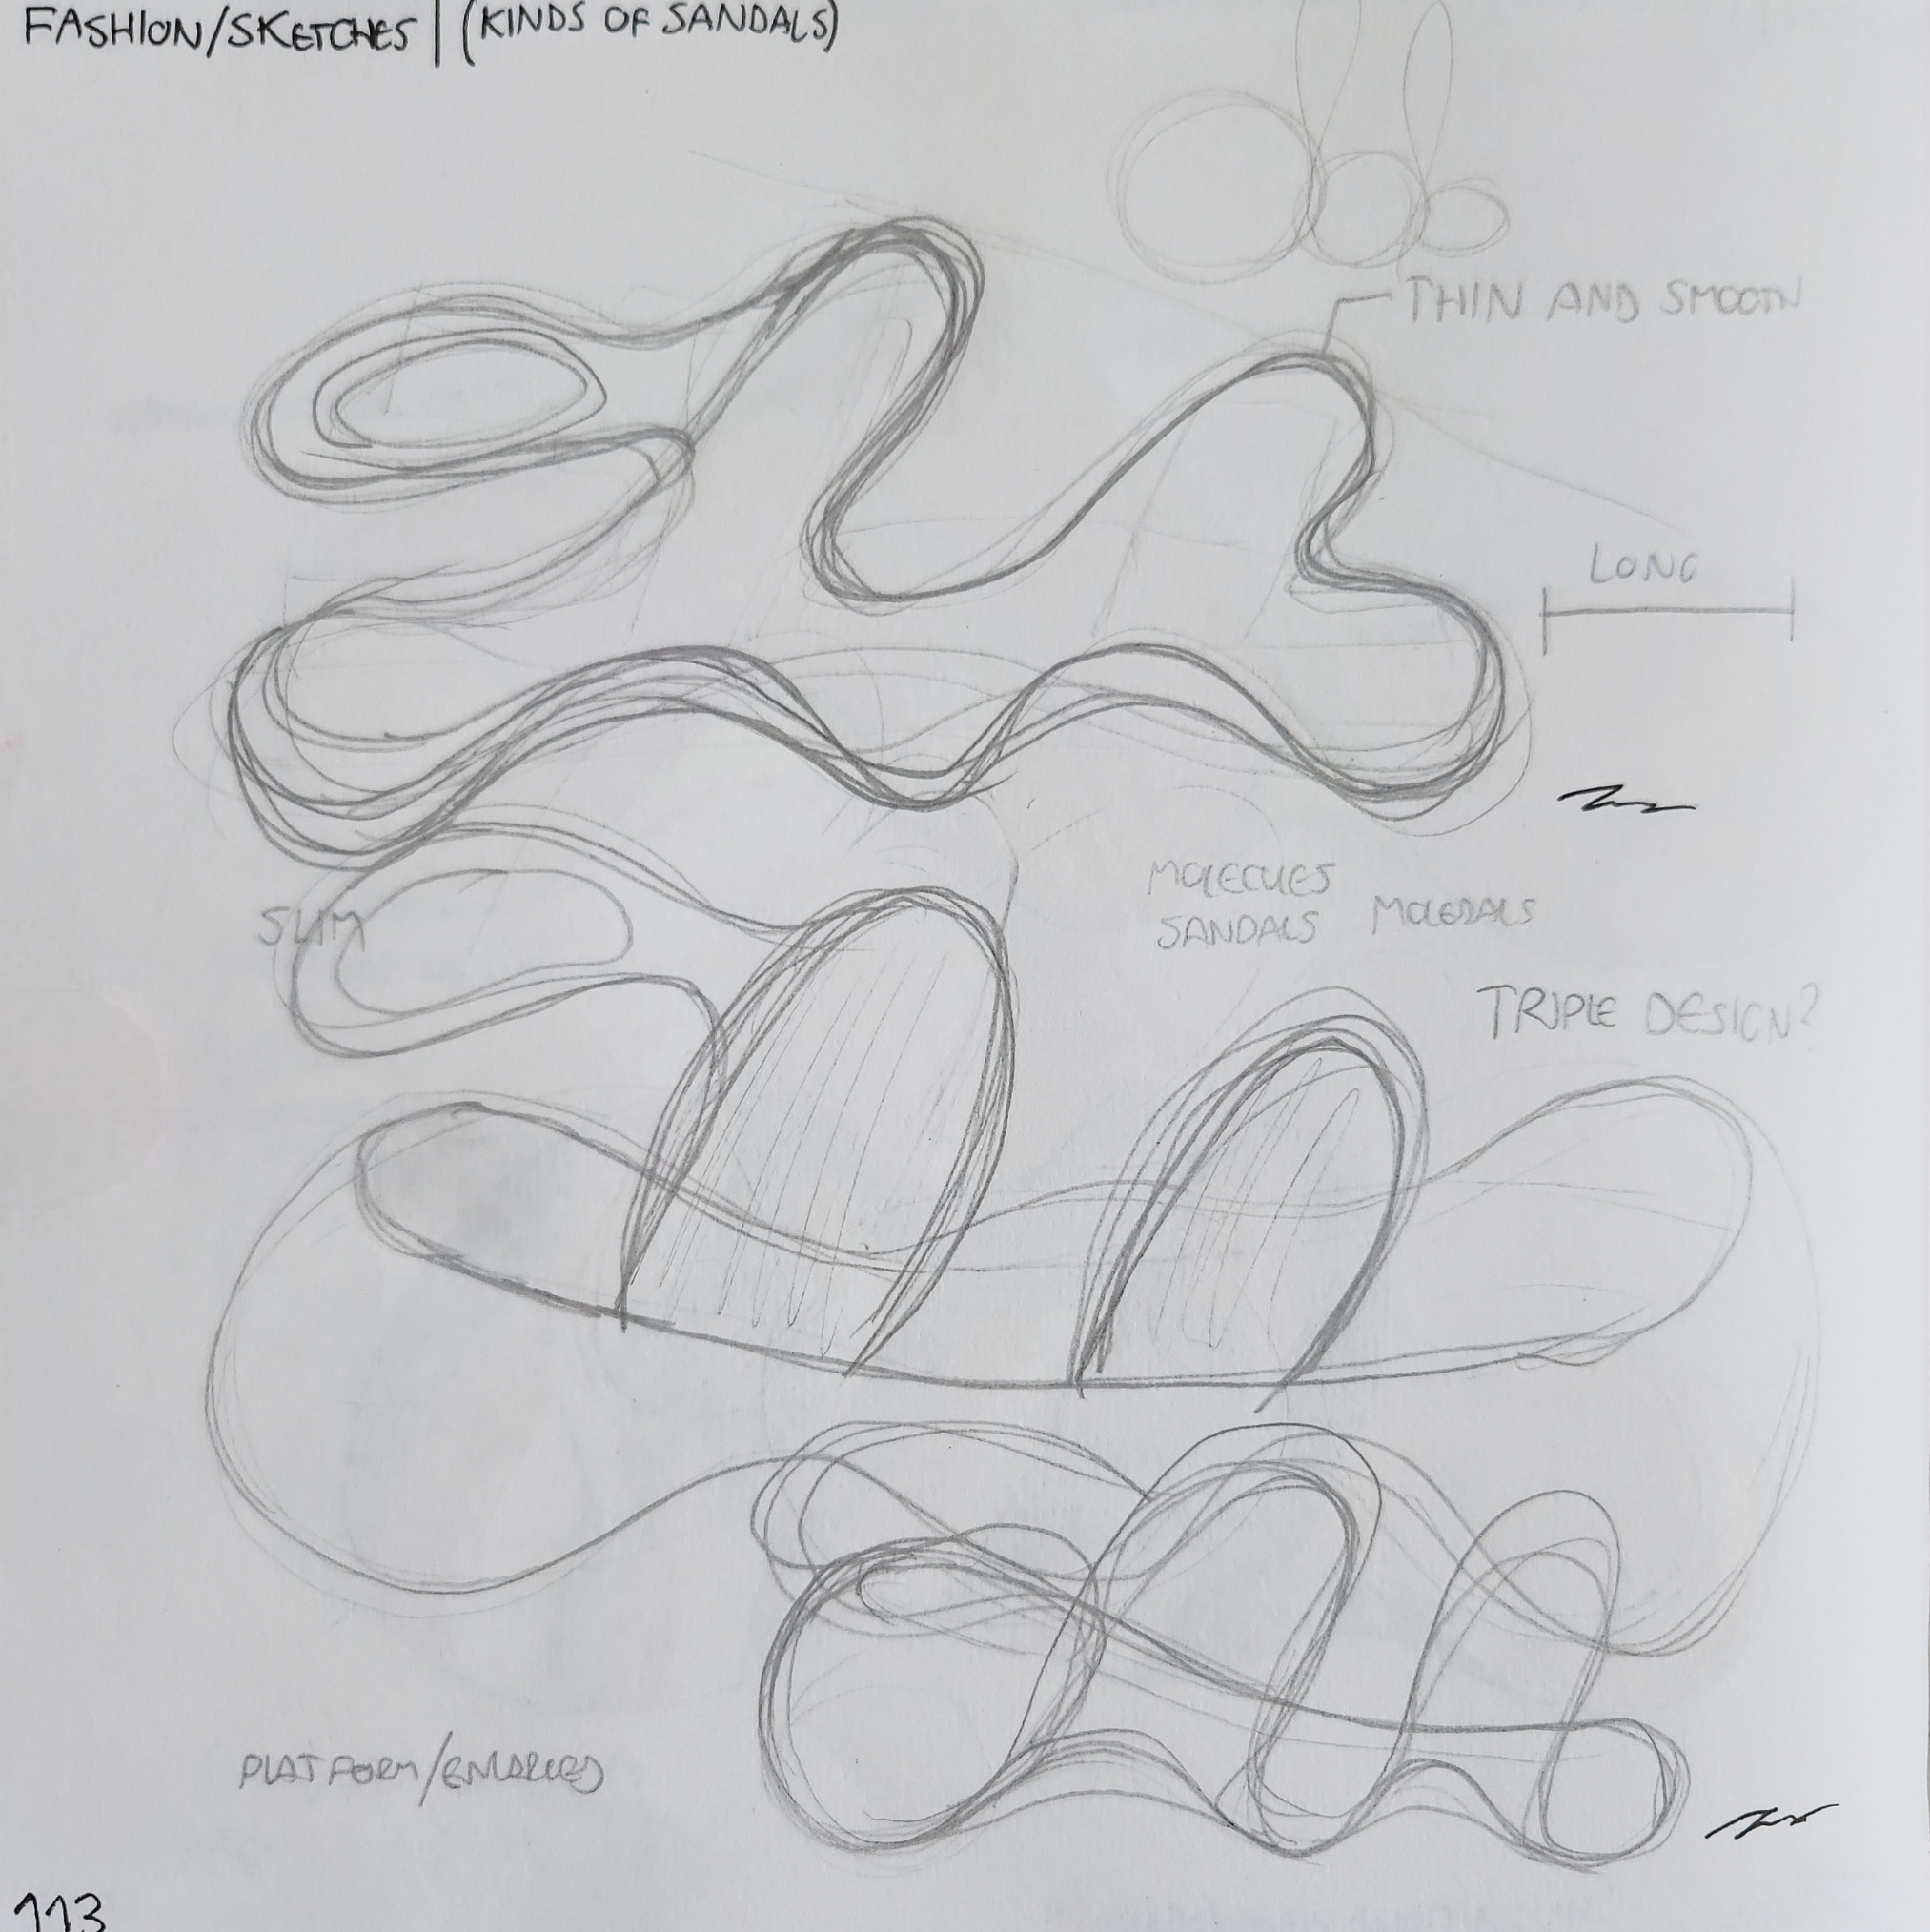 FASHION/SKETCHES | (KINDS OF SANDALS)
THIN AND SMOOTH
LONG
MOLECULES
SANDALS MOLEDALS
SLIM
TRIPLE DESIGN?
PLATFORM/ENLARGED
113